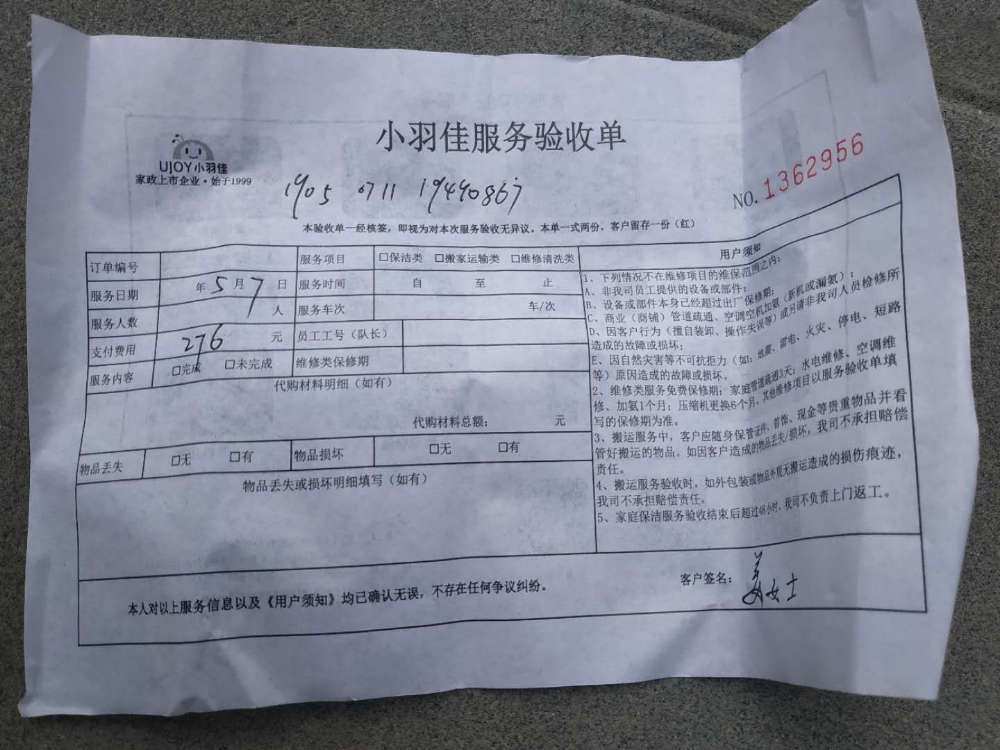 小羽佳服务验收单
UJOY小羽佳
家政上市企业·始于1999
1905 0711 19490867
NO.1362956
本验收单一经核签，即视为对本次服务验收无异议。本单一式两份，客户留存一份（红）
订单编号 服务项目 □保洁类 □搬家运输类 □维修清洗类
服务日期 年5月7日 服务时间 自 至 止
服务人数 人 服务车次 车/次
支付费用 276 元 员工工号（队长）
服务内容 □完成 □未完成 维修类保修期
代购材料明细（如有）
代购材料总额： 元
物品丢失 □无 □有 物品损坏 □无 □有
物品丢失或损坏明细填写（如有）
用户须知
1、下列情况不在维修项目的维保范围之内：
A、非我司员工提供的设备或部件；
B、设备或部件本身已经超过出厂保修期；
C、商业（商铺）管道疏通、空调空机加氨（新机或漏氨）；
D、因客户行为（擅自装卸、操作失误等）或另请非我司人员检修所
造成的故障或损坏；
E、因自然灾害等不可抗拒力（如：地震、雷电、火灾、停电、短路
等）原因造成的故障或损坏。
2、维修类服务免费保修期：家庭管道疏通3天；水电维修、空调维
修、加氨1个月；压缩机更换6个月，其他维修项目以服务验收单填
写的保修期为准。
3、搬运服务中，客户应随身保管证件、首饰、现金等贵重物品并看
管好搬运的物品。如因客户造成的物品丢失/损坏，我司不承担赔偿
责任。
4、搬运服务验收时，如外包装或物品外观无搬运造成的损伤痕迹，
我司不承担赔偿责任。
5、家庭保洁服务验收结束后超过48小时，我司不负责上门返工。
本人对以上服务信息以及《用户须知》均已确认无误，不存在任何争议纠纷。
客户签名： 女士